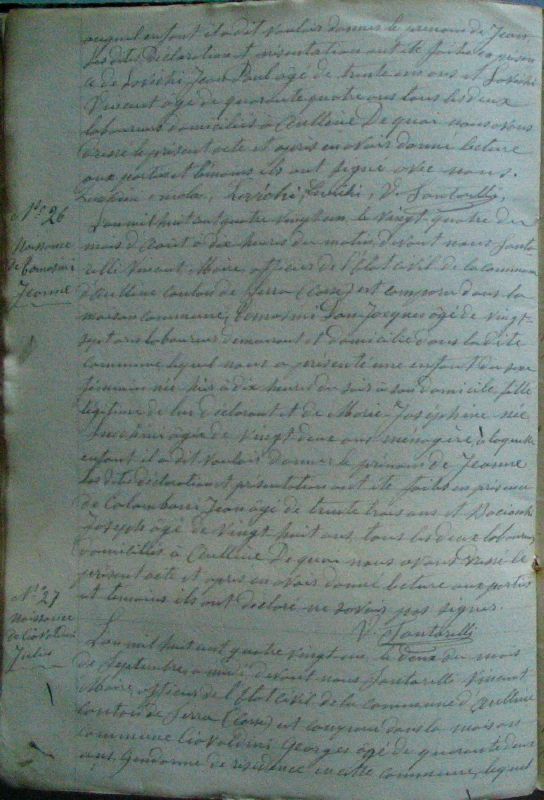 auquel enfant il a dit vouloir donner le prénom de Jean
Les dites déclaration et présentation ont été faites en présen
ce de Lovichi Jean Paul âgé de trente ans et Lovichi
Vincent âgé de quarante quatre ans tous les deux
laboureurs domiciliés à Aullene De quoi nous avons
dressé le présent acte et après en avoir donné lecture
aux parties et témoins ils ont signé avec nous.
Lovichi, Lovichi, V. Santarelli
N° 26
Naissance
de
Jeanne
L'an mil huit cent quatre vingt un le vingt quatre du
mois d'Août à dix heures du matin devant nous Santa-
relli Vincent Maire, officier de l'Etat civil de la commune
d'Aullene canton de Serra (Corse) est comparu dans la
maison commune, Don Jacques âgé de vingt-
sept ans laboureur demeurant et domicilié dans la dite
commune lequel nous a présenté une enfant du sexe
féminin née hier à dix heures du soir à son domicile fille
légitime de lui déclarant et de Marie Joséphine née
âgée de vingt deux ans ménagère, à laquelle
enfant il a dit vouloir donner le prénom de Jeanne
Les dites déclaration et présentation ont été faites en présence
de Colombani Jean âgé de trente trois ans et
Joseph âgé de vingt huit ans, tous les deux laboureurs
domiciliés à Aullene De quoi nous avons dressé le
présent acte et après en avoir donné lecture aux parties
et témoins ils ont déclaré ne savoir pas signer.
V. Santarelli
N° 27
Naissance
de Ciavaldini
Julie
L'an mil huit cent quatre vingt un, le deux du mois
de Septembre, à midi devant nous Santarelli Vincent
Maire, officier de l'Etat civil de la commune d'Aullene
canton de Serra (Corse) est comparu dans la maison
commune Ciavaldini Georges âgé de quarante deux
ans, Gendarme de résidence en cette commune, lequel